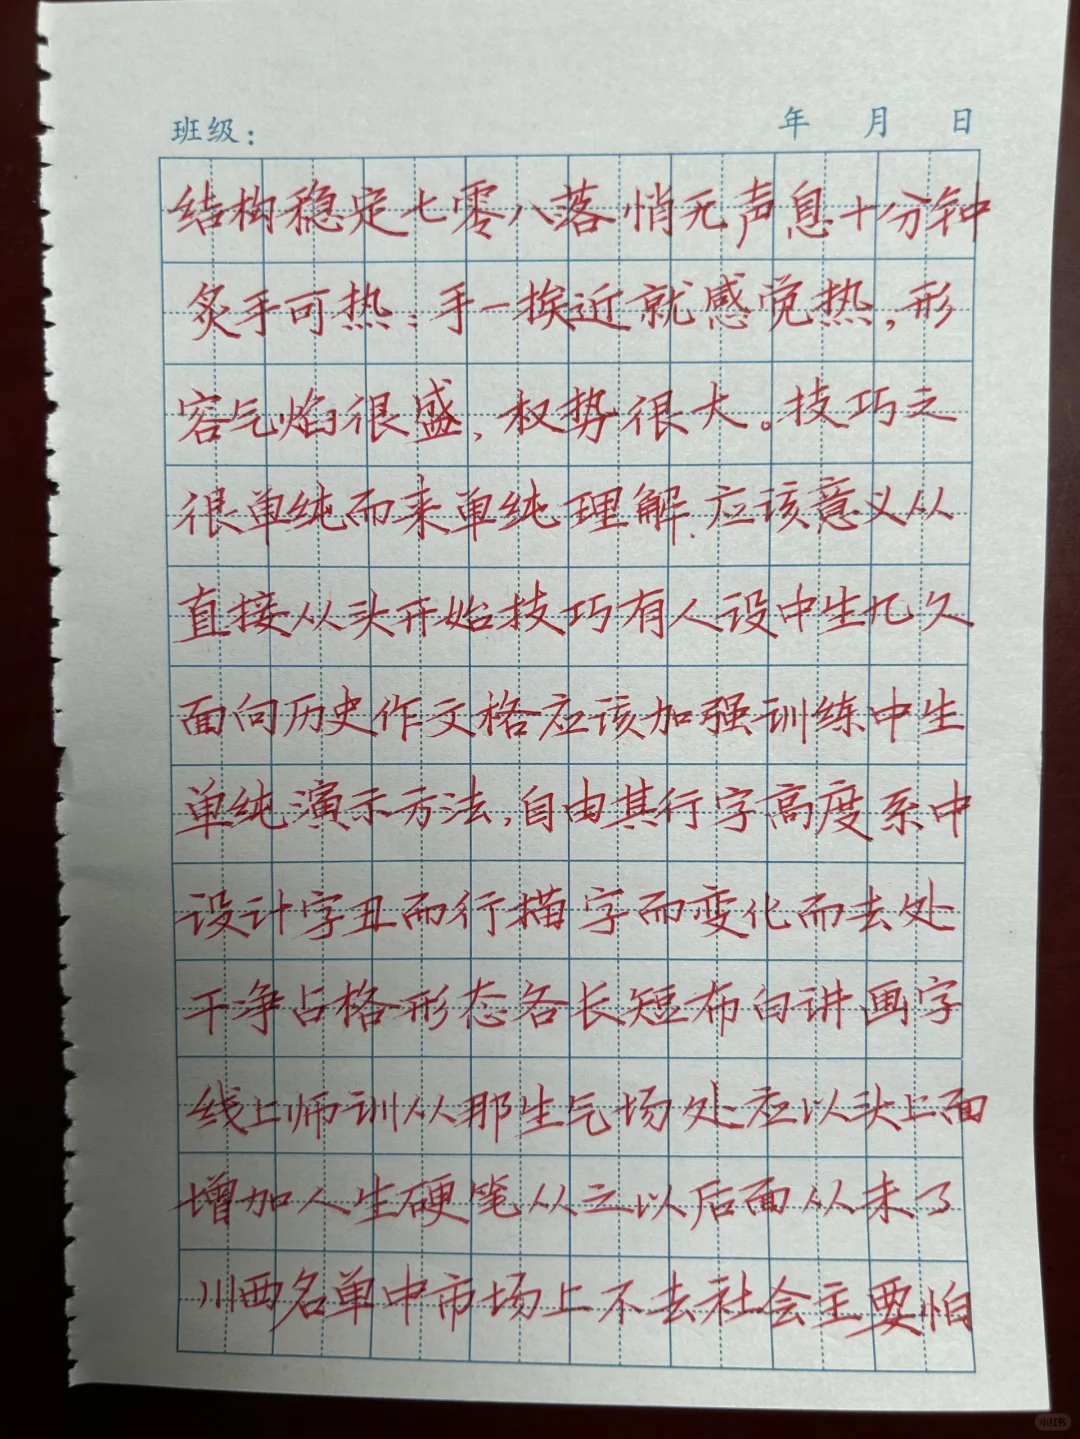 班级： 年 月 日
结构稳定七零八落悄无声息十分钟
炙手可热：手一挨近就感觉热，形
容气焰很盛，权势很大。技巧之
很单纯而来单纯理解．应该意义从
直接从头开始技巧有人设中生几久
面向历史作文格应该加强训练中生
单纯演示方法，自由其行字高度系中
设计字丑而行描字而变化而去处
干净占格形态各长短布白讲画字
线上师训从那生气场处应以头上面
增加人生硬笔从之以后面从来了
川西名单中市场上不去社会主要怕
小红书